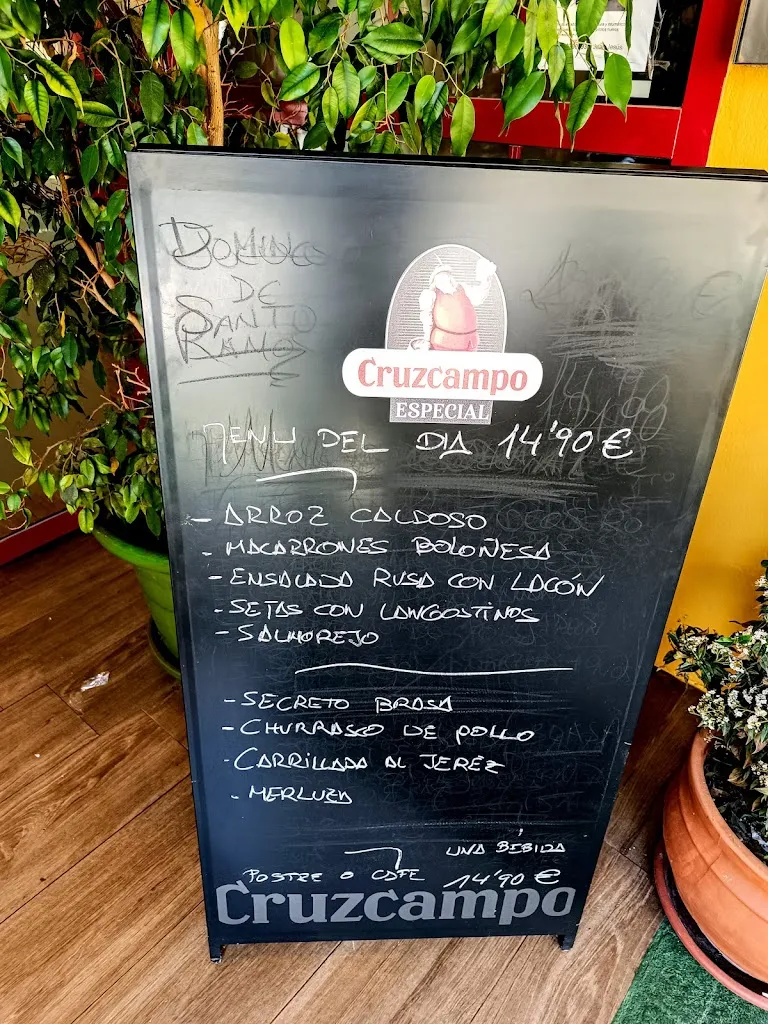 DOMINGO
DE
SANTO
RAMOS
Cruzcampo
ESPECIAL
MENU DEL DIA 14'90 €
- ARROZ CALDOSO
- MACARRONES BOLOÑESA
- ENSALADA RUSA CON LACÓN
- SETAS CON LANGOSTINOS
- SALMOREJO
- SECRETO BRASA
- CHURRASCO DE POLLO
- CARRILLADA AL JEREZ
- MERLUZA
UNA BEBIDA
POSTRE O CAFE 14'90 €
Cruzcampo